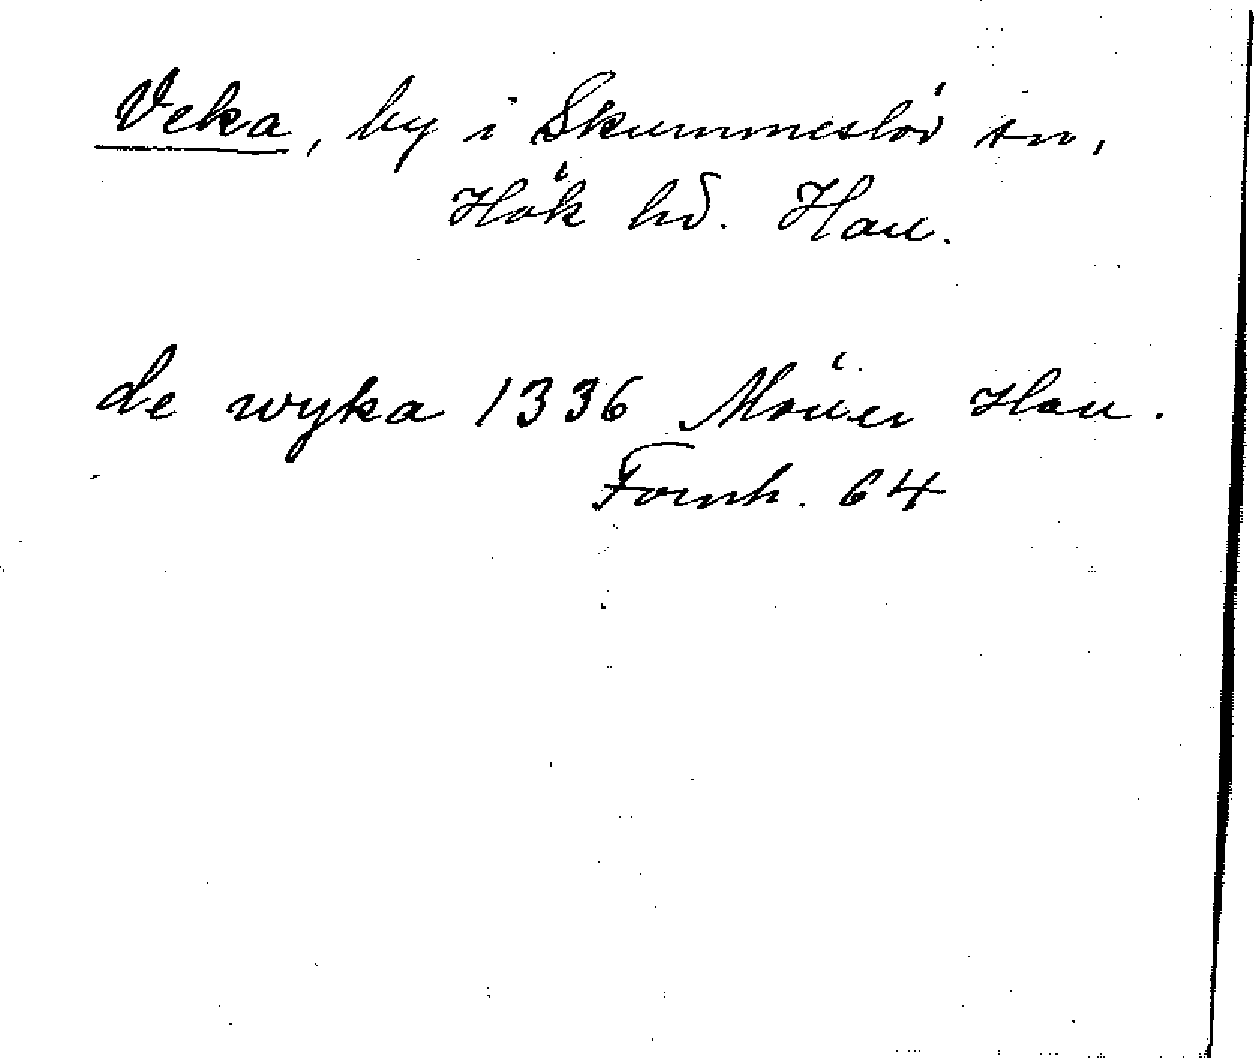 Veka, by i Skummeslöv sn,
Hök hd. Hall.
de wyka 1336 Möller Hall.
Fornh. 64